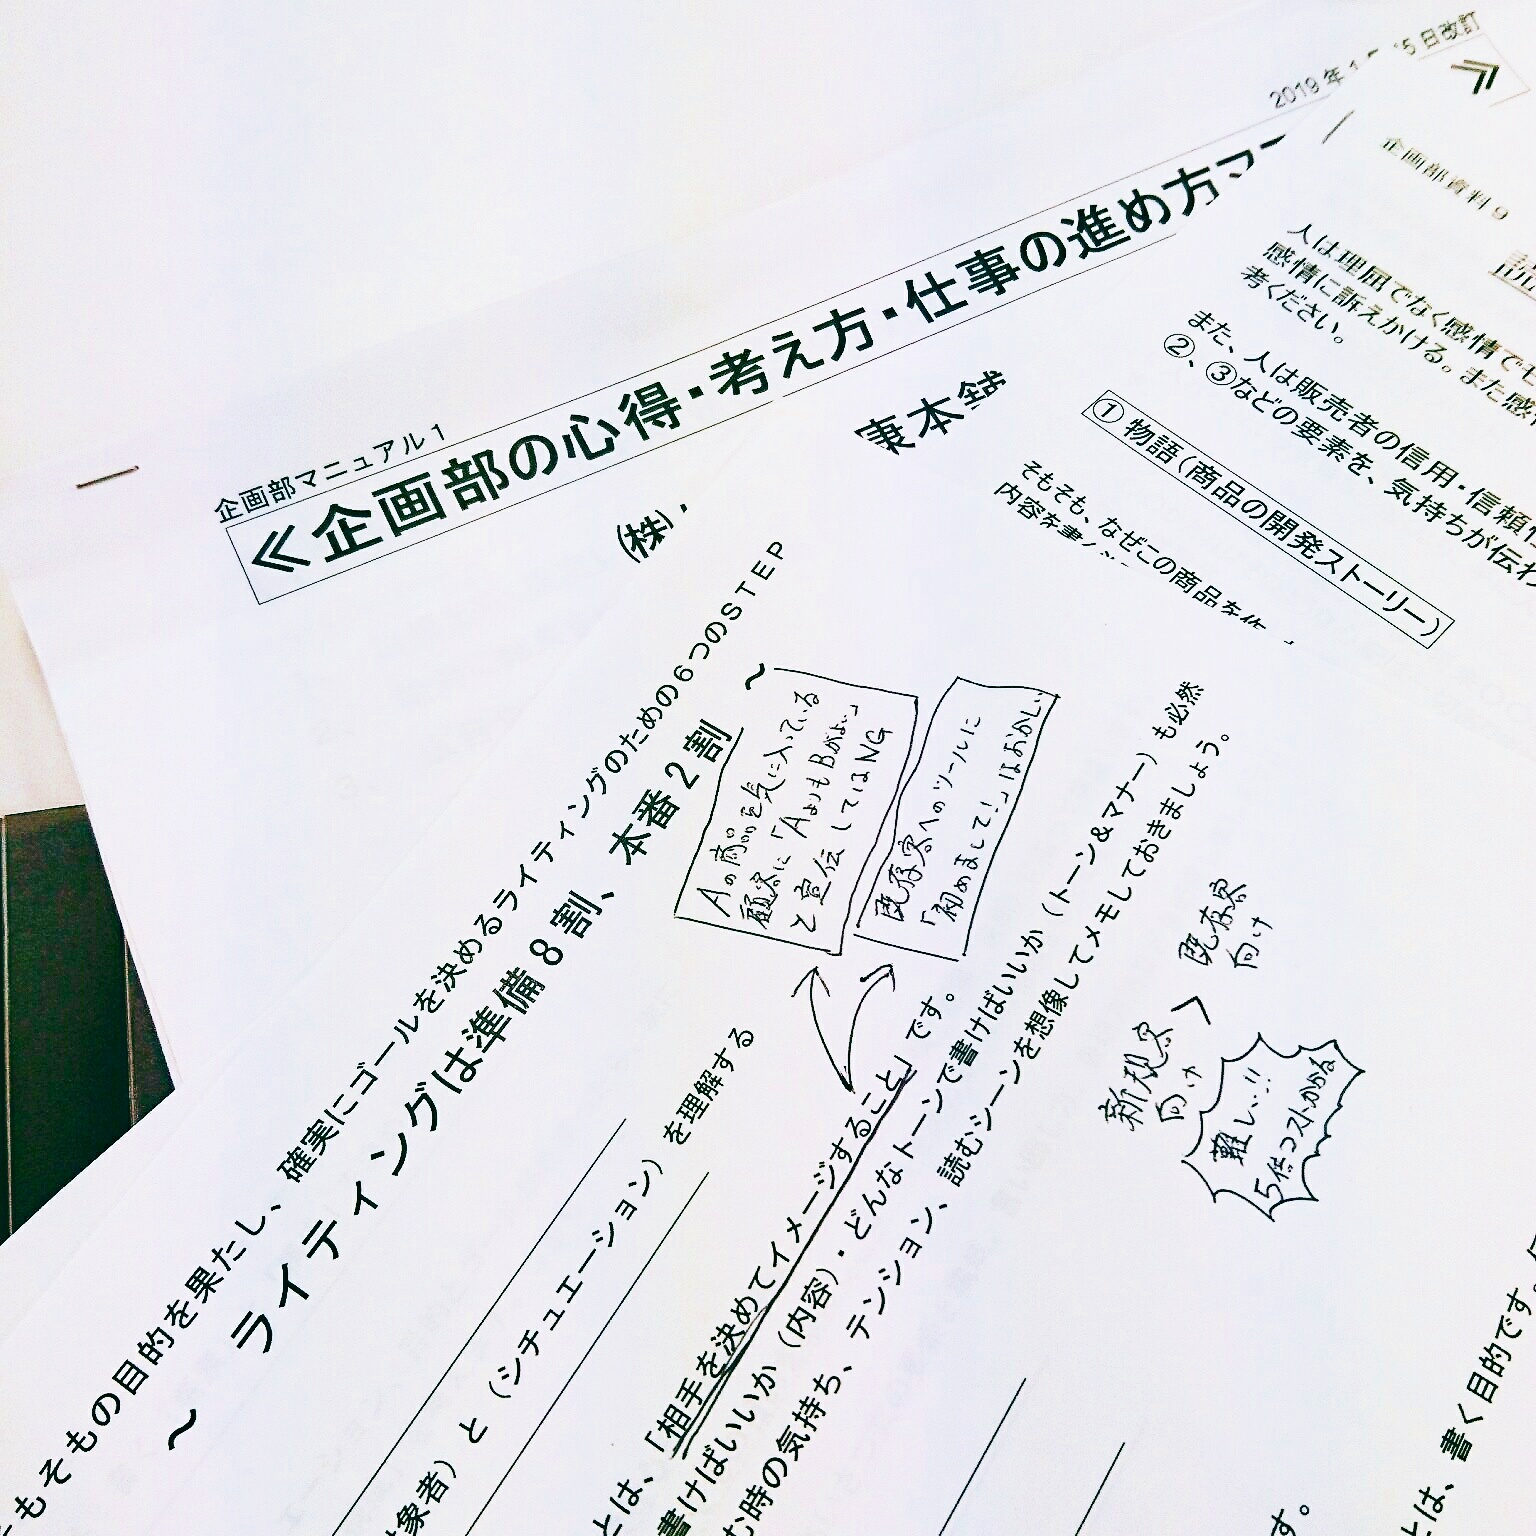 企画部マニュアル1
≪企画部の心得・考え方・仕事の進め方マ
(株)
本舗
2019年
5日改訂
≫
企画部資料9
人は理屈でなく感情で
感情に訴えかける。また感
考ください。
また、人は販売者の信用・信頼性
②、③などの要素を、気持ちが伝わ
①物語(商品の開発ストーリー)
そもそも、なぜこの商品を作
内容を書く
そもそもの目的を果たし、確実にゴールを決めるライティングのための6つのSTEP
～ライティングは準備8割、本番2割～
対象者)と(シチュエーション)を理解する
Aの商品を気に入っている
顧客に「AよりもBがよい」
と宣伝してはNG
既存客へのツールに
「初めまして!」はおかしい
とは、「相手を決めてイメージすること」です。
書けばいいか(内容)・どんなトーンで書けばいいか(トーン&マナー)も必然
む時の気持ち、テンション、読むシーンを想像してメモしておきましょう。
新規客
向け
>
既存客
向け
難しい!!
5倍コストかかる
す。
とは、書く目的です。